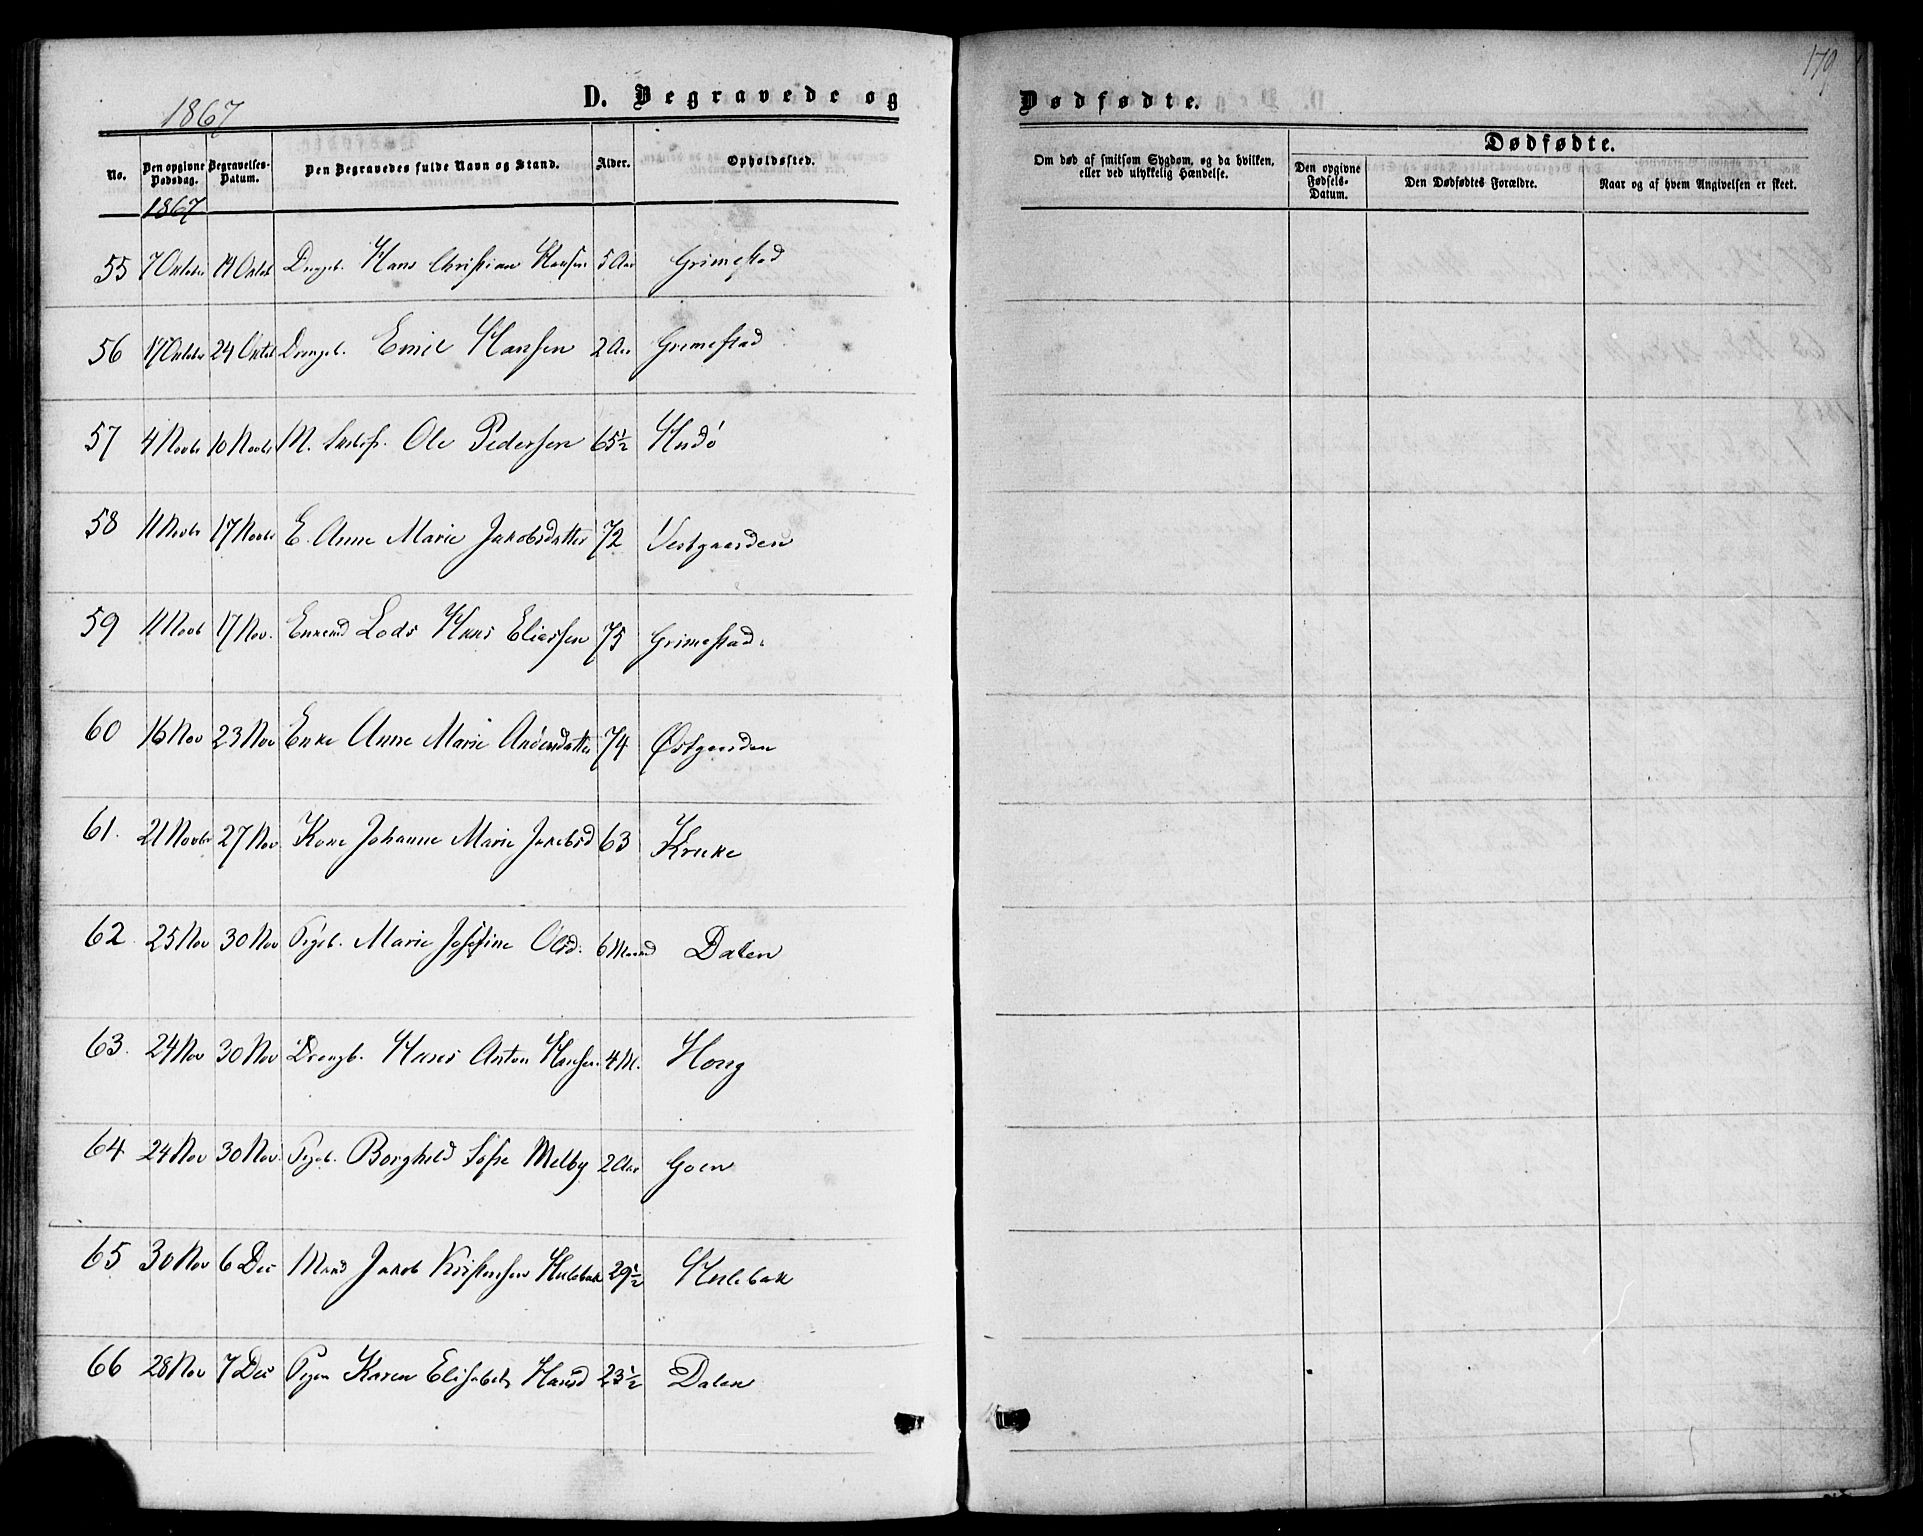 179
1867
D. Begravede og
Dødfødte.
No.
Den opgivne Dødsdag.
Begravelses-Datum.
Den Begravedes fulde Navn og Stand.
Alder.
Opholdssted.
Om død af smitsom Sygdom, og da hvilken, eller ved ulykkelig Hændelse.
Dødfødte.
Den opgivne Fødsels-Datum.
Den Dødfødtes Forældre.
Naar og af hvem Angivelsen er skeet.
1867
55 7 Oktobr 14 Oktob Drengb. Hans Christian Hansen 5 Aar Grimestad
56 17 Oktobr 24 Oktob Drengeb. Emil Hansen 2 Aar Grimestad
57 4 Novbr 10 Novbr M. Ole Pedersen 65½ Hudø
58 11 Novbr 17 Novbr E. Anne Marie Jakobsdatter 72 Vestgaarden
59 11 Novb 17 Nov. Enkemd Lods Hans Eliassen 75 Grimestad.
60 16 Nov 23 Nov Enke Anne Marie Andersdatter 74 Østgaarden
61. 21 Novbr 27 Nov Kone Johanne Marie Jakobsd 63 Kruke
62. 25 Nov 30 Nov Pigeb. Marie Josefine Olsd. 6 Maaned Dalen
63. 24 Nov 30 Nov Drengb. Hans Anton Hansen. 4 M. Hong
64 24 Nov 30 Nov. Pigeb. Borghild Sofie Melby 2 Aar Goen
65 30 Nov 6 Dec Mand Jakob Kristensen Hulebak 29½ Hulebak
66 28 Nov 7 Dec Pigen Karen Elisabeth Hansd 23½ Dalen